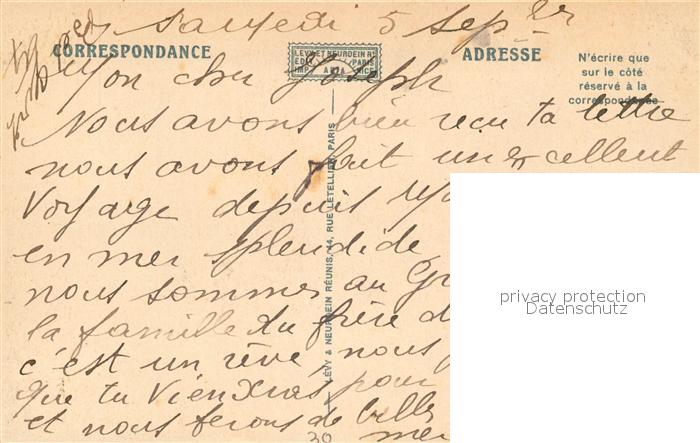 Samedi 5 Sep
CORRESPONDANCE
LEVY ET NEURDEIN RÉ
EDIT PARIS
IMP
ADRESSE
N'écrire que
sur le côté
réservé à la
correspondance
Mon cher Joseph
Nous avons bien reçu ta lettre
nous avons fait un excellent
Voyage depuis
en mer splendide
nous sommes au
la famille du frère d
c'est un rêve, nous
que tu Viendras pour
et nous ferons de belle
mer
LÉVY & NEURDEIN RÉUNIS, 44, RUE LETELLIER, PARIS
30
privacy protection
Datenschutz